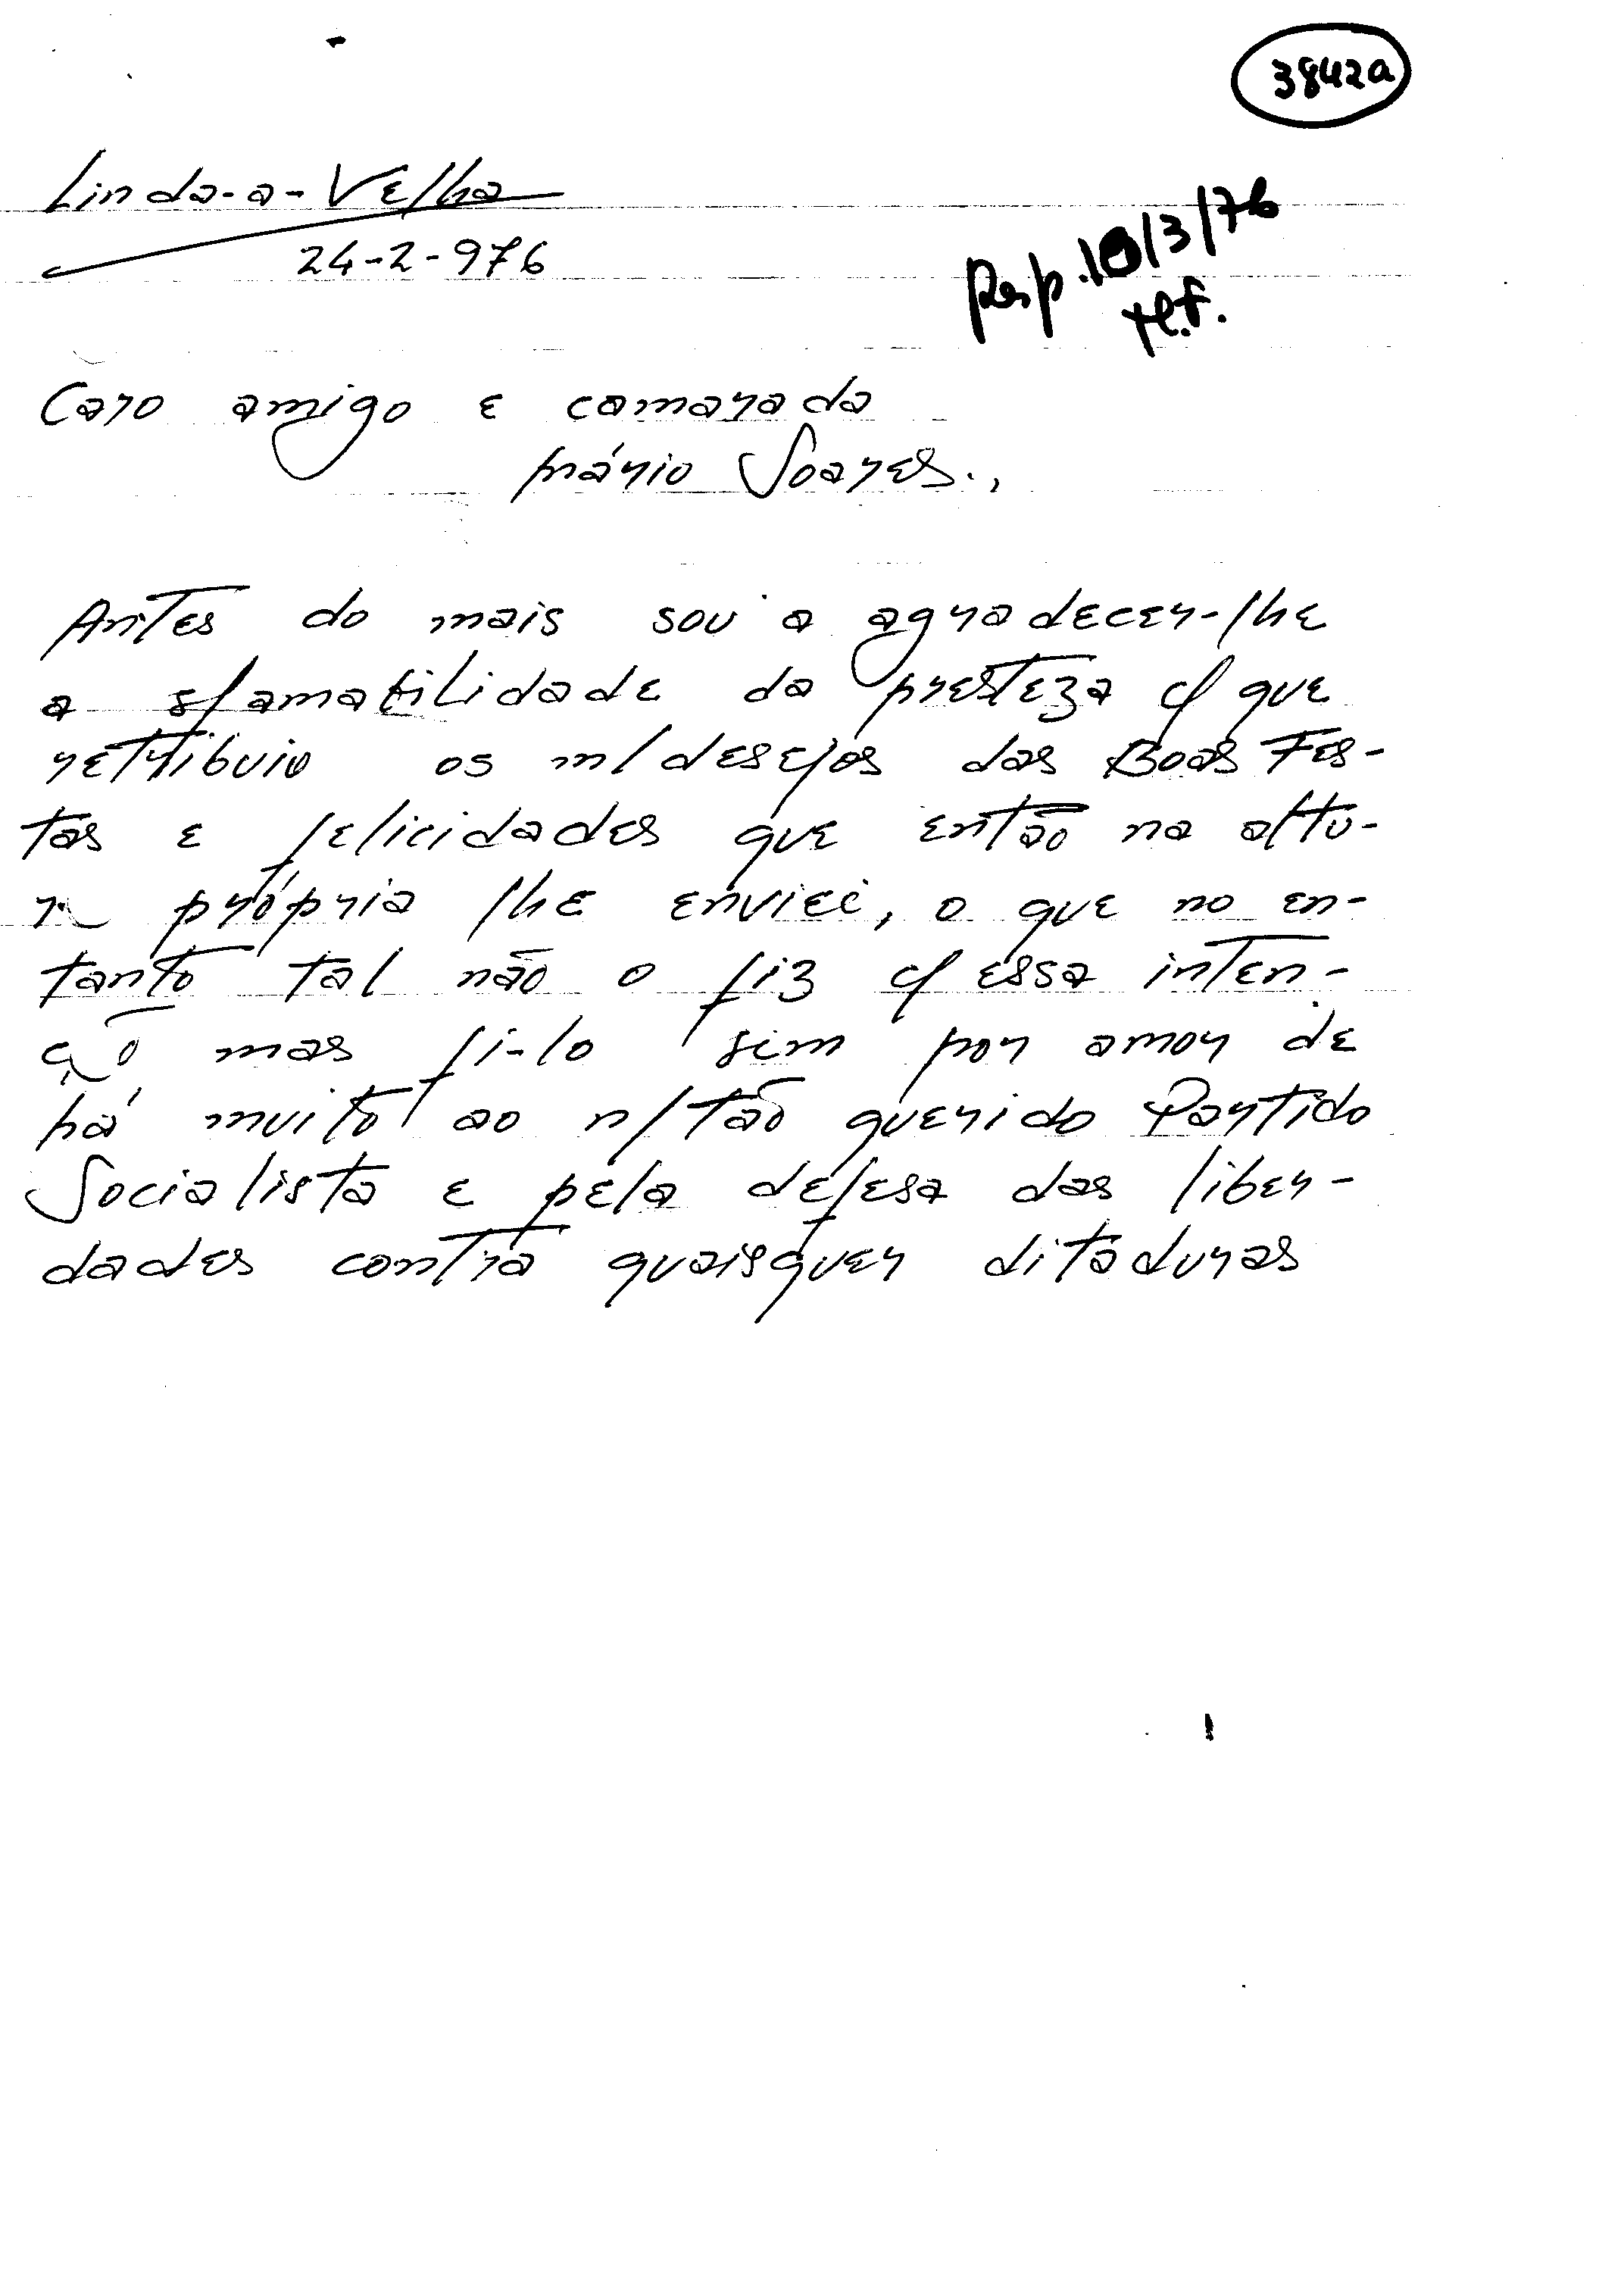 3842a
Linda-a-Velha
24-2-976
Resp. 10/3/76
Caro amigo e camarada
Mário Soares.,
Antes do mais sou a agradecer-lhe
a s/amabilidade da presteza c/ que
retribuio os m/desejos das Boas Fes-
tas e felicidades que então na altu-
ra própria lhe enviei, o que no en-
tanto tal não o fiz c/ essa inten-
ção mas fi-lo sim por amor de
há muito ao n/tão querido Partido
Socialista e pela defesa das liber-
dades contra quaisquer ditaduras